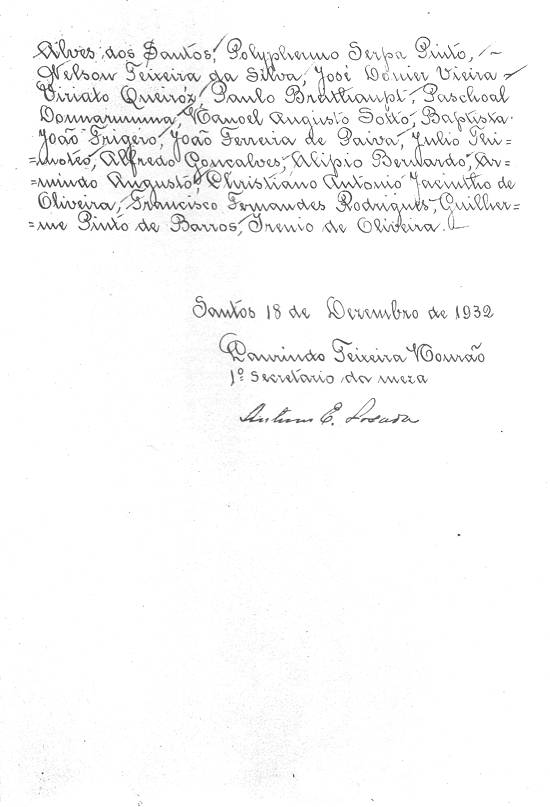 Alves dos Santos, Polyphemo Serpa Pinto,
Nelson Teixeira da Silva, José Domer Vieira
Viriato Queiróz, Paulo Breithaupt, Paschoal
Donnarumma, Manoel Augusto Sotto, Baptista
João Frigero, João Ferreira de Paiva, Julio Thi=
=moteo, Alfredo Gonçalves, Alipio Bernardo, Ar=
=mindo Augusto, Christiano Antonio Jacintho de
Oliveira, Francisco Fernandes Rodrigues, Guilher=
=me Pinto de Barros, Irenio de Oliveira.
Santos 18 de Dezembro de 1932
Teixeira Mourão
1º Secretario da meza
E. Losada